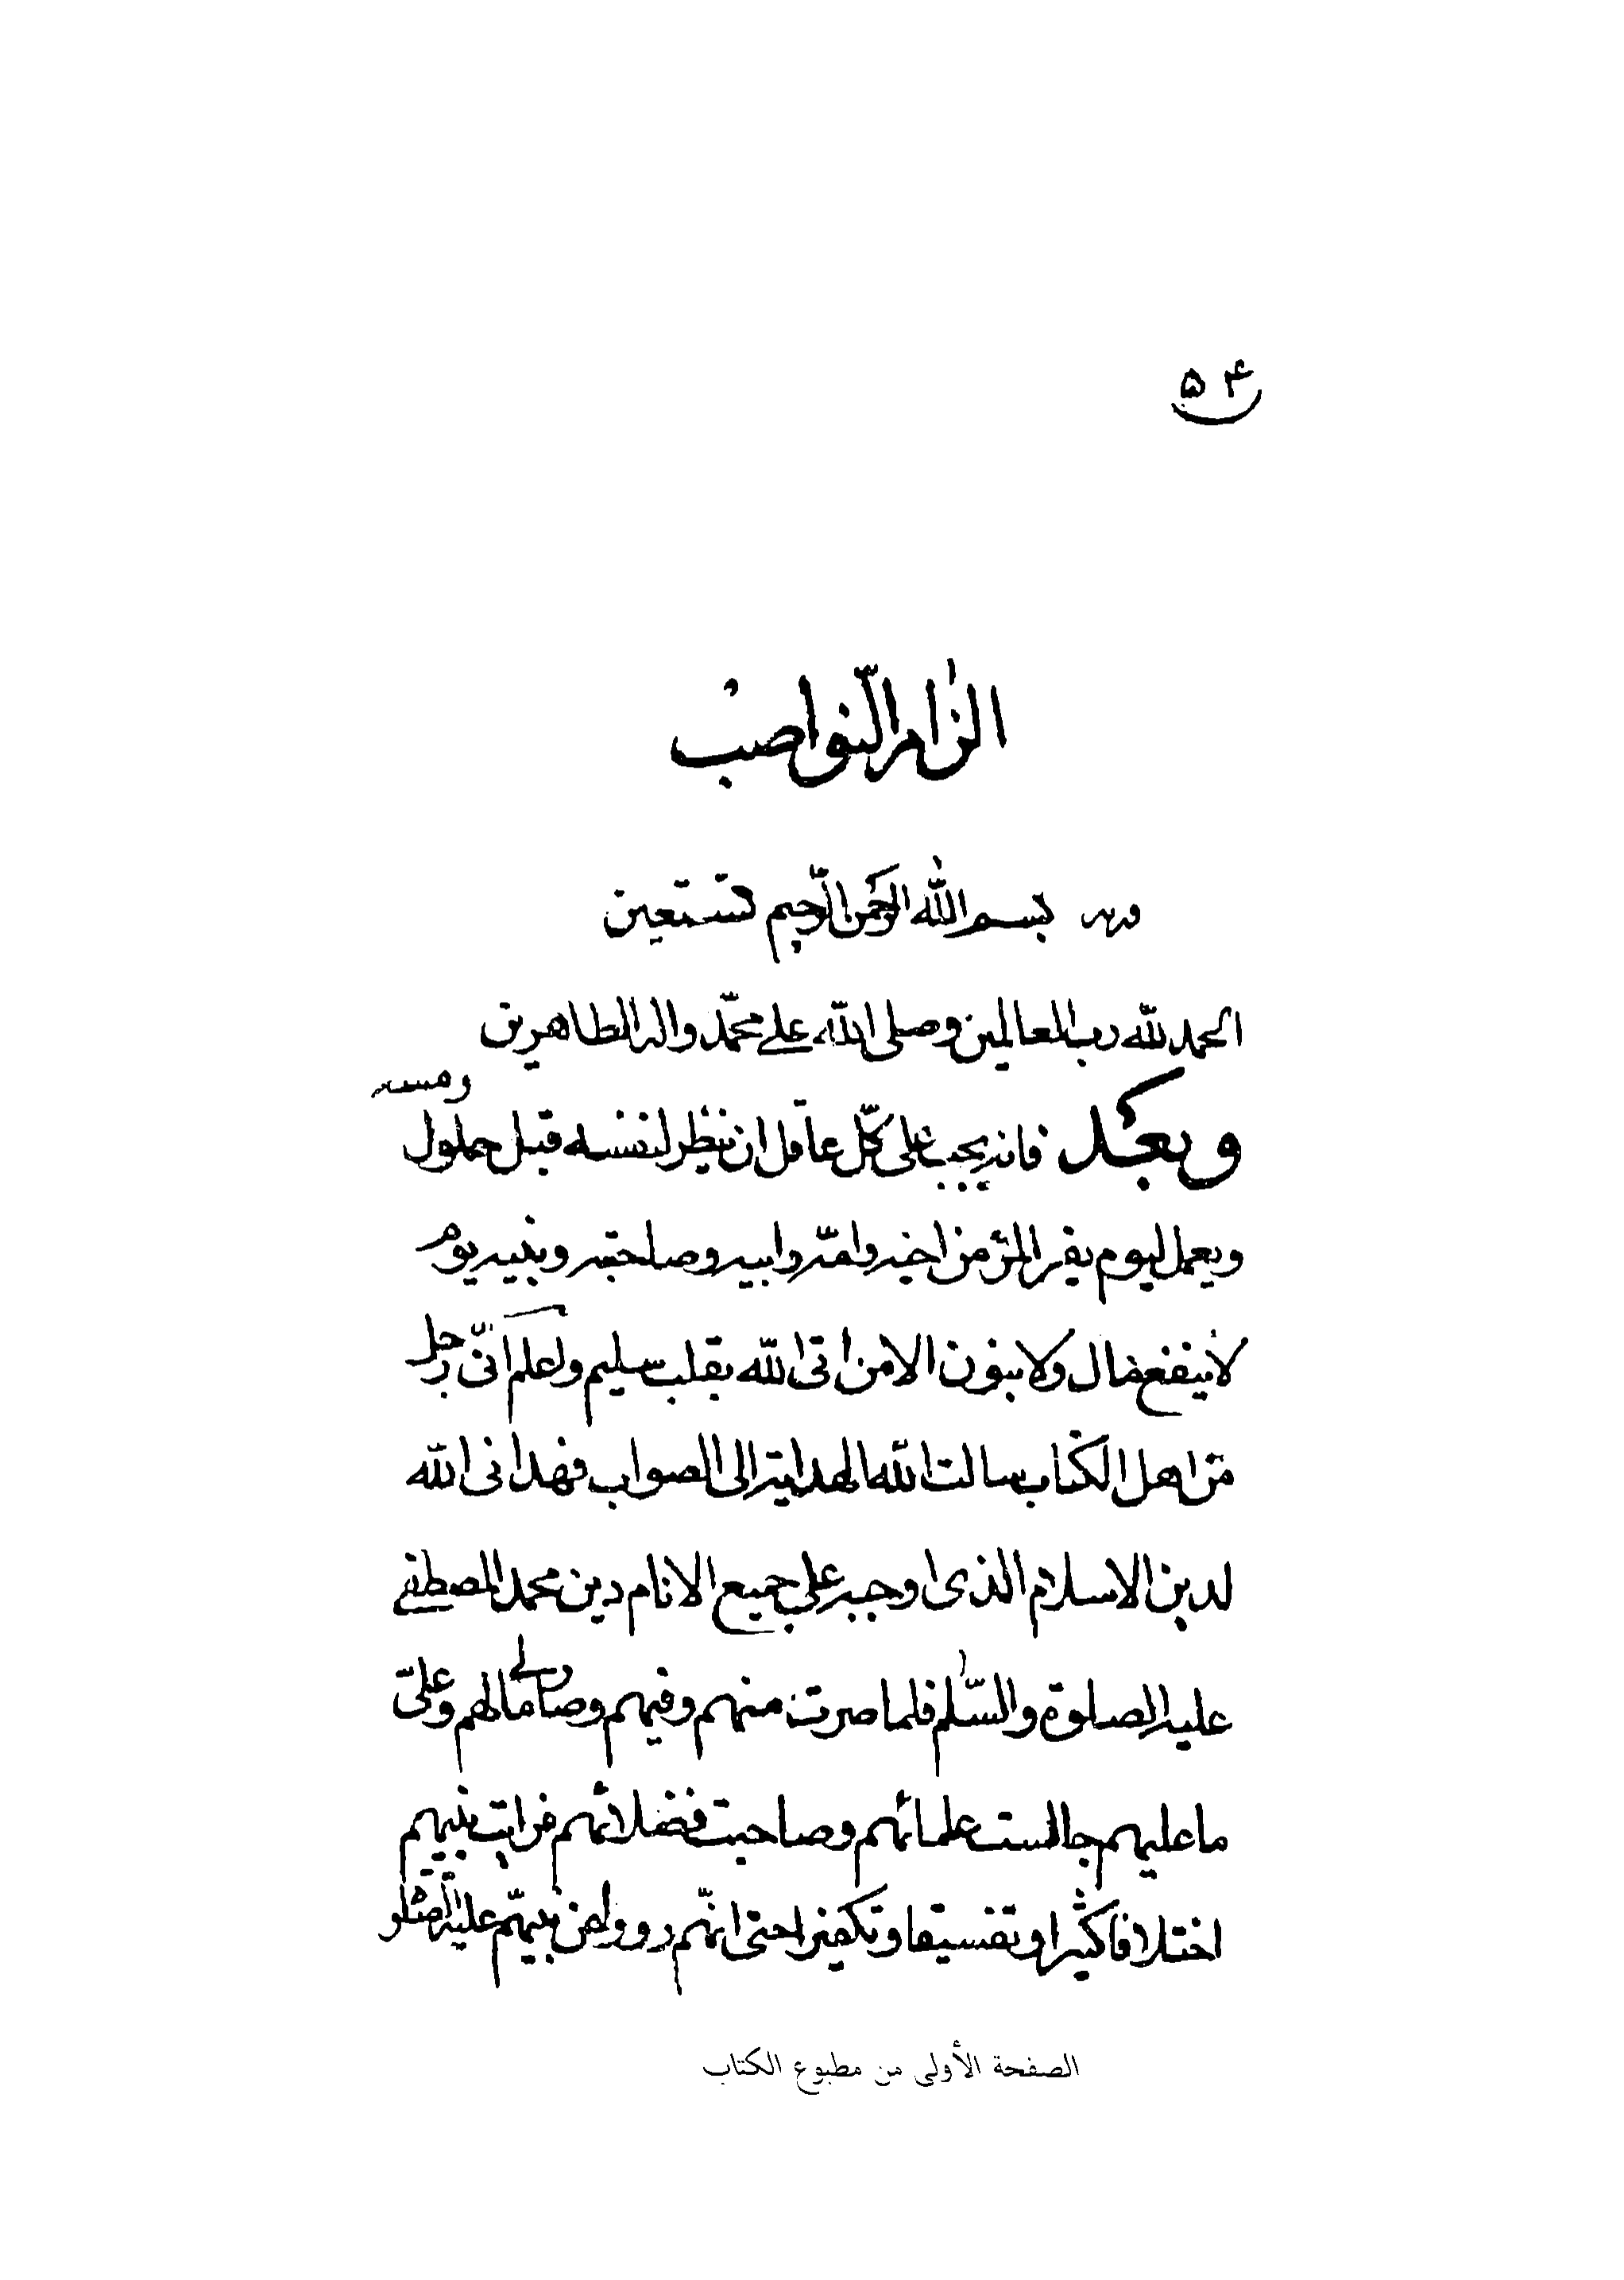 ۵۴
الزام النواصب
وبه بسم الله الرحمن الرحيم نستعين
الحمد لله رب العالمين وصلى الله على محمّد واله الطاهرين
رمسه
وبعد فانه يجب على كلّ عاقل ان ينظر لنفسه قبل حلول
ويعمل ليوم يفر المرء من اخيه وامّه وابيه وصاحبته وبنيه يوم
لا ينفع مال ولا بنون الا من اتى الله بقلب سليم واعلم انّى رجل
من اهل الكتاب سالت الله الهداية الى الصواب فهدانى الله
لدين الاسلام الذى اوجبه على جميع الانام دين محمد المصطفى
عليه الصلوة والسّلم فلما صرت منهم وفيهم وصار لى مالهم وعلىّ
ما عليهم جالست علمائهم وصاحبت فضلائهم فرايت بينهم
اختلافا كثيرا وتفسيقا وتكفيرا حتى انهّم رووا عن نبيهّم عليه الصّلو
الصفحة الأولى من مطبوع الكتاب